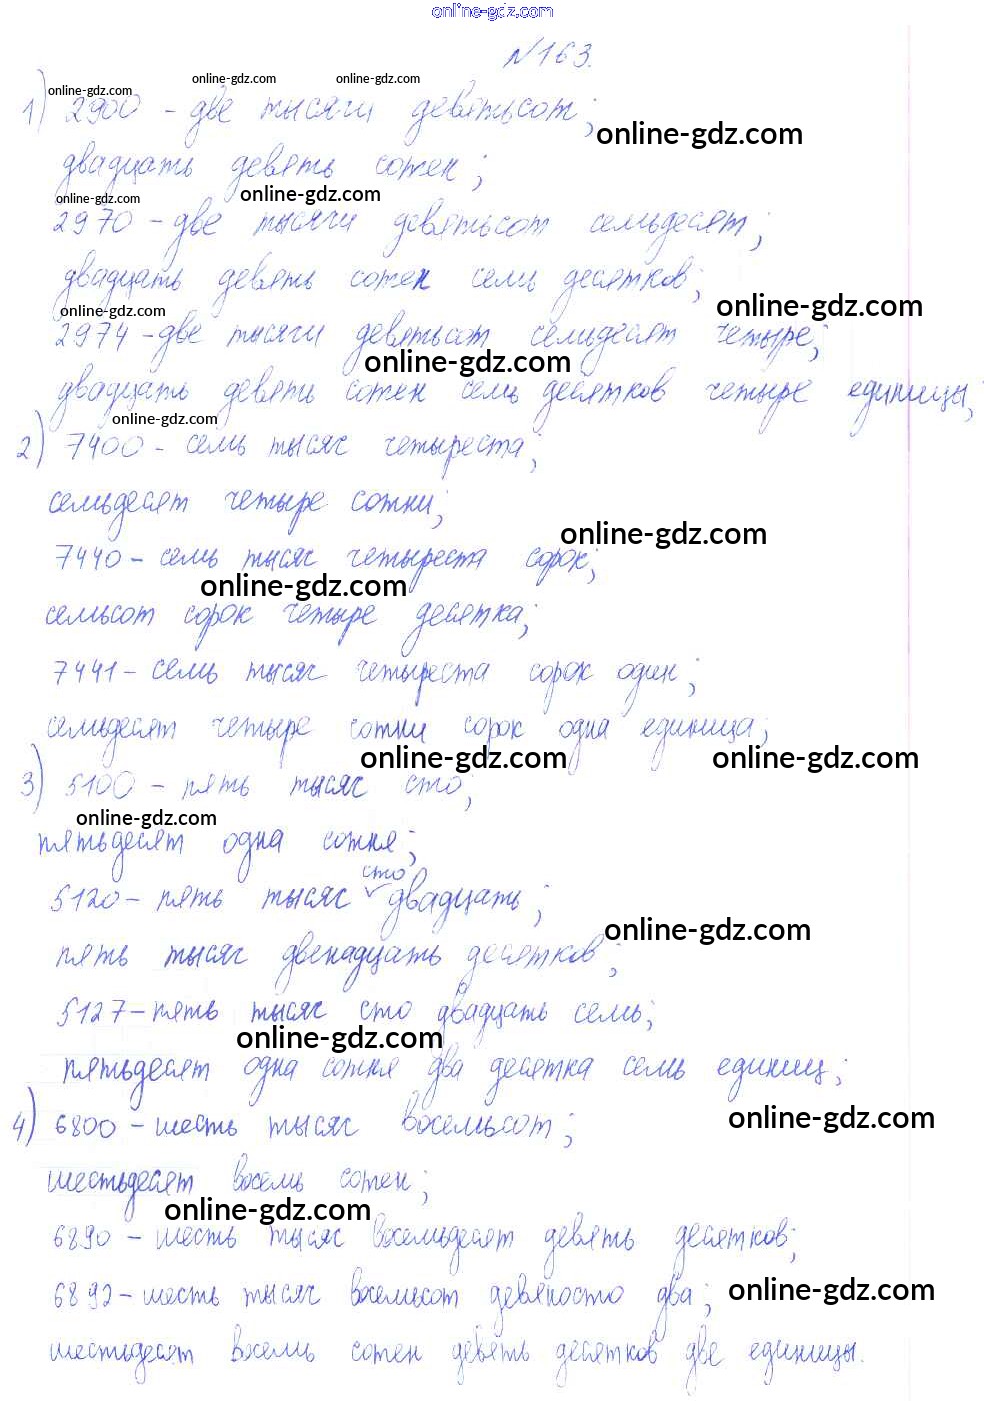 online-gdz.com
№163.
online-gdz.com online-gdz.com online-gdz.com
1) 2900 - две тысячи девятьсот;
online-gdz.com
двадцать девять сотен;
online-gdz.com online-gdz.com
2970 - две тысячи девятьсот семьдесят;
двадцать девять сотен семь десятков;
online-gdz.com online-gdz.com
2974 - две тысячи девятьсот семьдесят четыре;
online-gdz.com
двадцать девять сотен семь десятков четыре единицы;
online-gdz.com
2) 7400 - семь тысяч четыреста;
семьдесят четыре сотни;
online-gdz.com
7440 - семь тысяч четыреста сорок;
online-gdz.com
семьсот сорок четыре десятка;
7441 - семь тысяч четыреста сорок один;
семьдесят четыре сотни сорок одна единица;
online-gdz.com online-gdz.com
3) 5100 - пять тысяч сто;
online-gdz.com
пятьдесят одна сотня;
5120 - пять тысяч сто двадцать;
online-gdz.com
пять тысяч двенадцать десятков;
5127 - пять тысяч сто двадцать семь;
online-gdz.com
пятьдесят одна сотня два десятка семь единиц;
online-gdz.com
4) 6800 - шесть тысяч восемьсот;
шестьдесят восемь сотен;
online-gdz.com
6890 - шесть тысяч восемьдесят девять десятков;
online-gdz.com
6892 - шесть тысяч восемьсот девяносто два;
шестьдесят восемь сотен девять десятков две единицы.